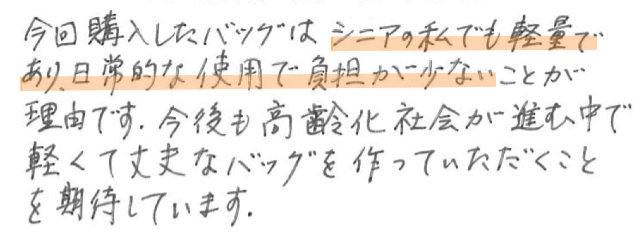 今回購入したバッグは シニアの私でも軽量で
あり、日常的な使用で負担が少ないことが
理由です。今後も高齢化社会が進む中で
軽くて丈夫なバッグを作っていただくこと
を期待しています。